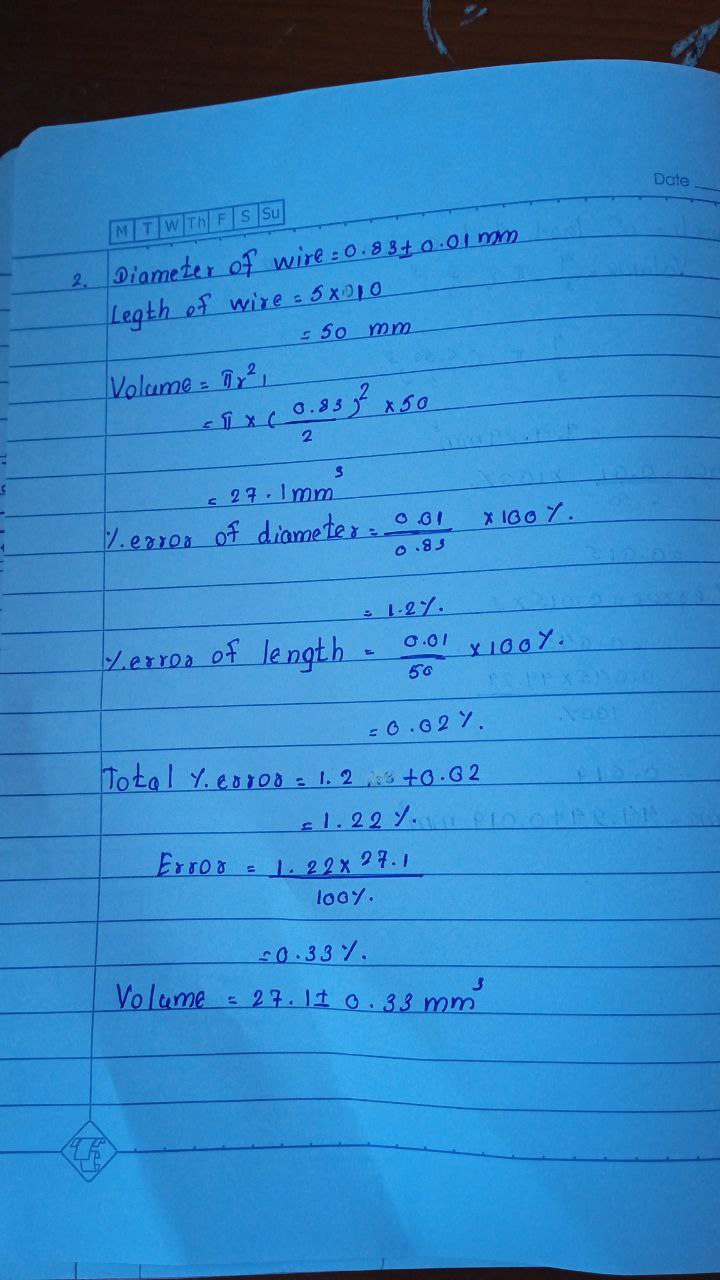 Date
M T W Th F S Su
2. Diameter of wire = 0.83 ± 0.01 mm
Legth of wire = 5 × 10
= 50 mm
Volume = πr²l
= π × (0.83/2)² × 50
= 27.1 mm³
%.error of diameter = 0.01/0.83 × 100 %.
= 1.2 %.
%.error of length = 0.01/50 × 100 %.
= 0.02 %.
Total %.error = 1.2 + 0.02
= 1.22 %.
Error = 1.22 × 27.1/100 %.
= 0.33 %.
Volume = 27.1 ± 0.33 mm³